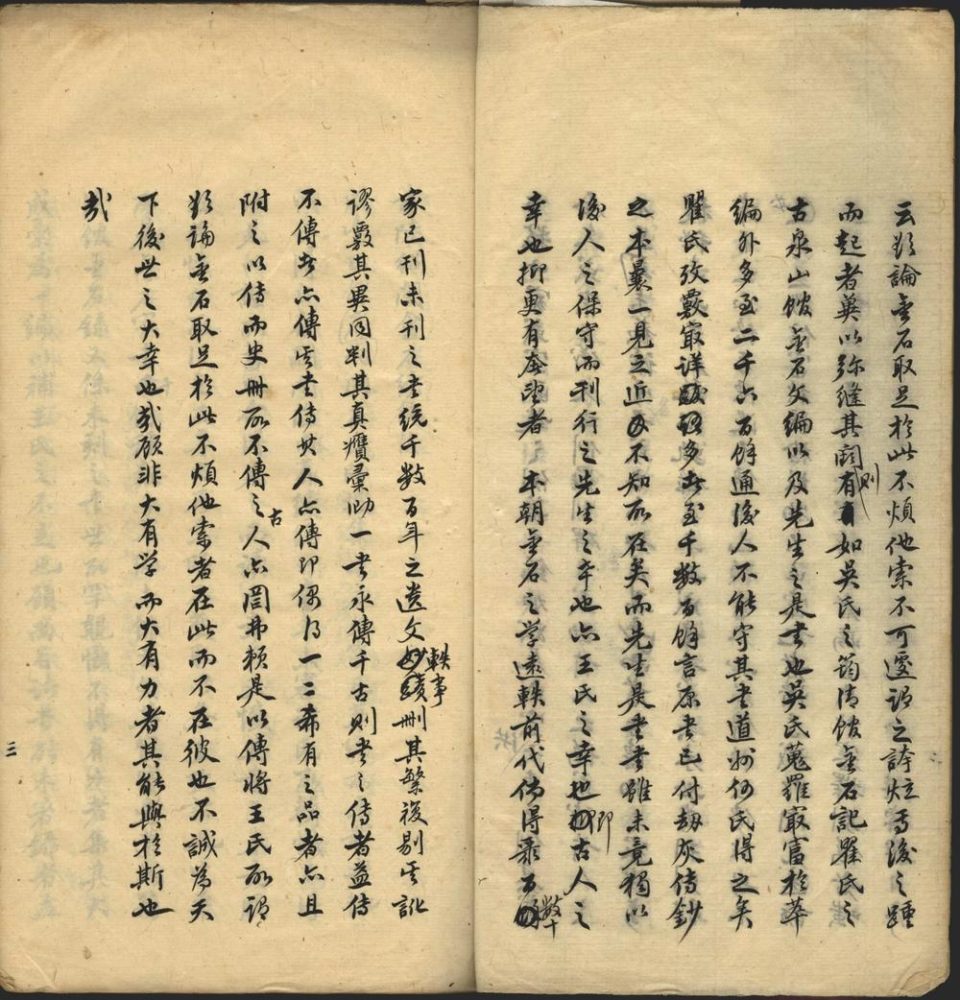 云欲論金石取足於此不煩他索不可遽謂之誇炫焉後之踵
而起者莫以弥縫其闕則有如吳氏之筠清館金石記瞿氏之
古泉山館金石文編以及先生之是書也吳氏蒐羅㝡富於萃
編外多至二千六百餘通後人不能守其書道州何氏得之矣
瞿氏攷覈㝡詳多者至千數百餘言原書已付劫灰傳鈔
之本曩一見之近不知所在矣而先生是書雖未竟獨以
後人之保守而刊行之先生之幸也亦王氏之幸也即古人之
幸也抑更有奢望者本朝金石之學遠軼前代倘得聚數十
家已刊未刊之書統千數百年之遺文軼事刪其繁複剔其訛
謬覈其異同判其真贋彙勒一書永傳千古則書之傳者益傳
不傳者亦傳其書傳其人亦傳即偶得一二希有之品者亦且
附之以傳而史冊所不傳之古人亦罔弗賴是以傳將王氏所謂
欲論金石取足於此不煩他索者在此而不在彼也不誠為天
下後世之大幸也哉顧非大有学而大有力者其能興於斯也
哉
三